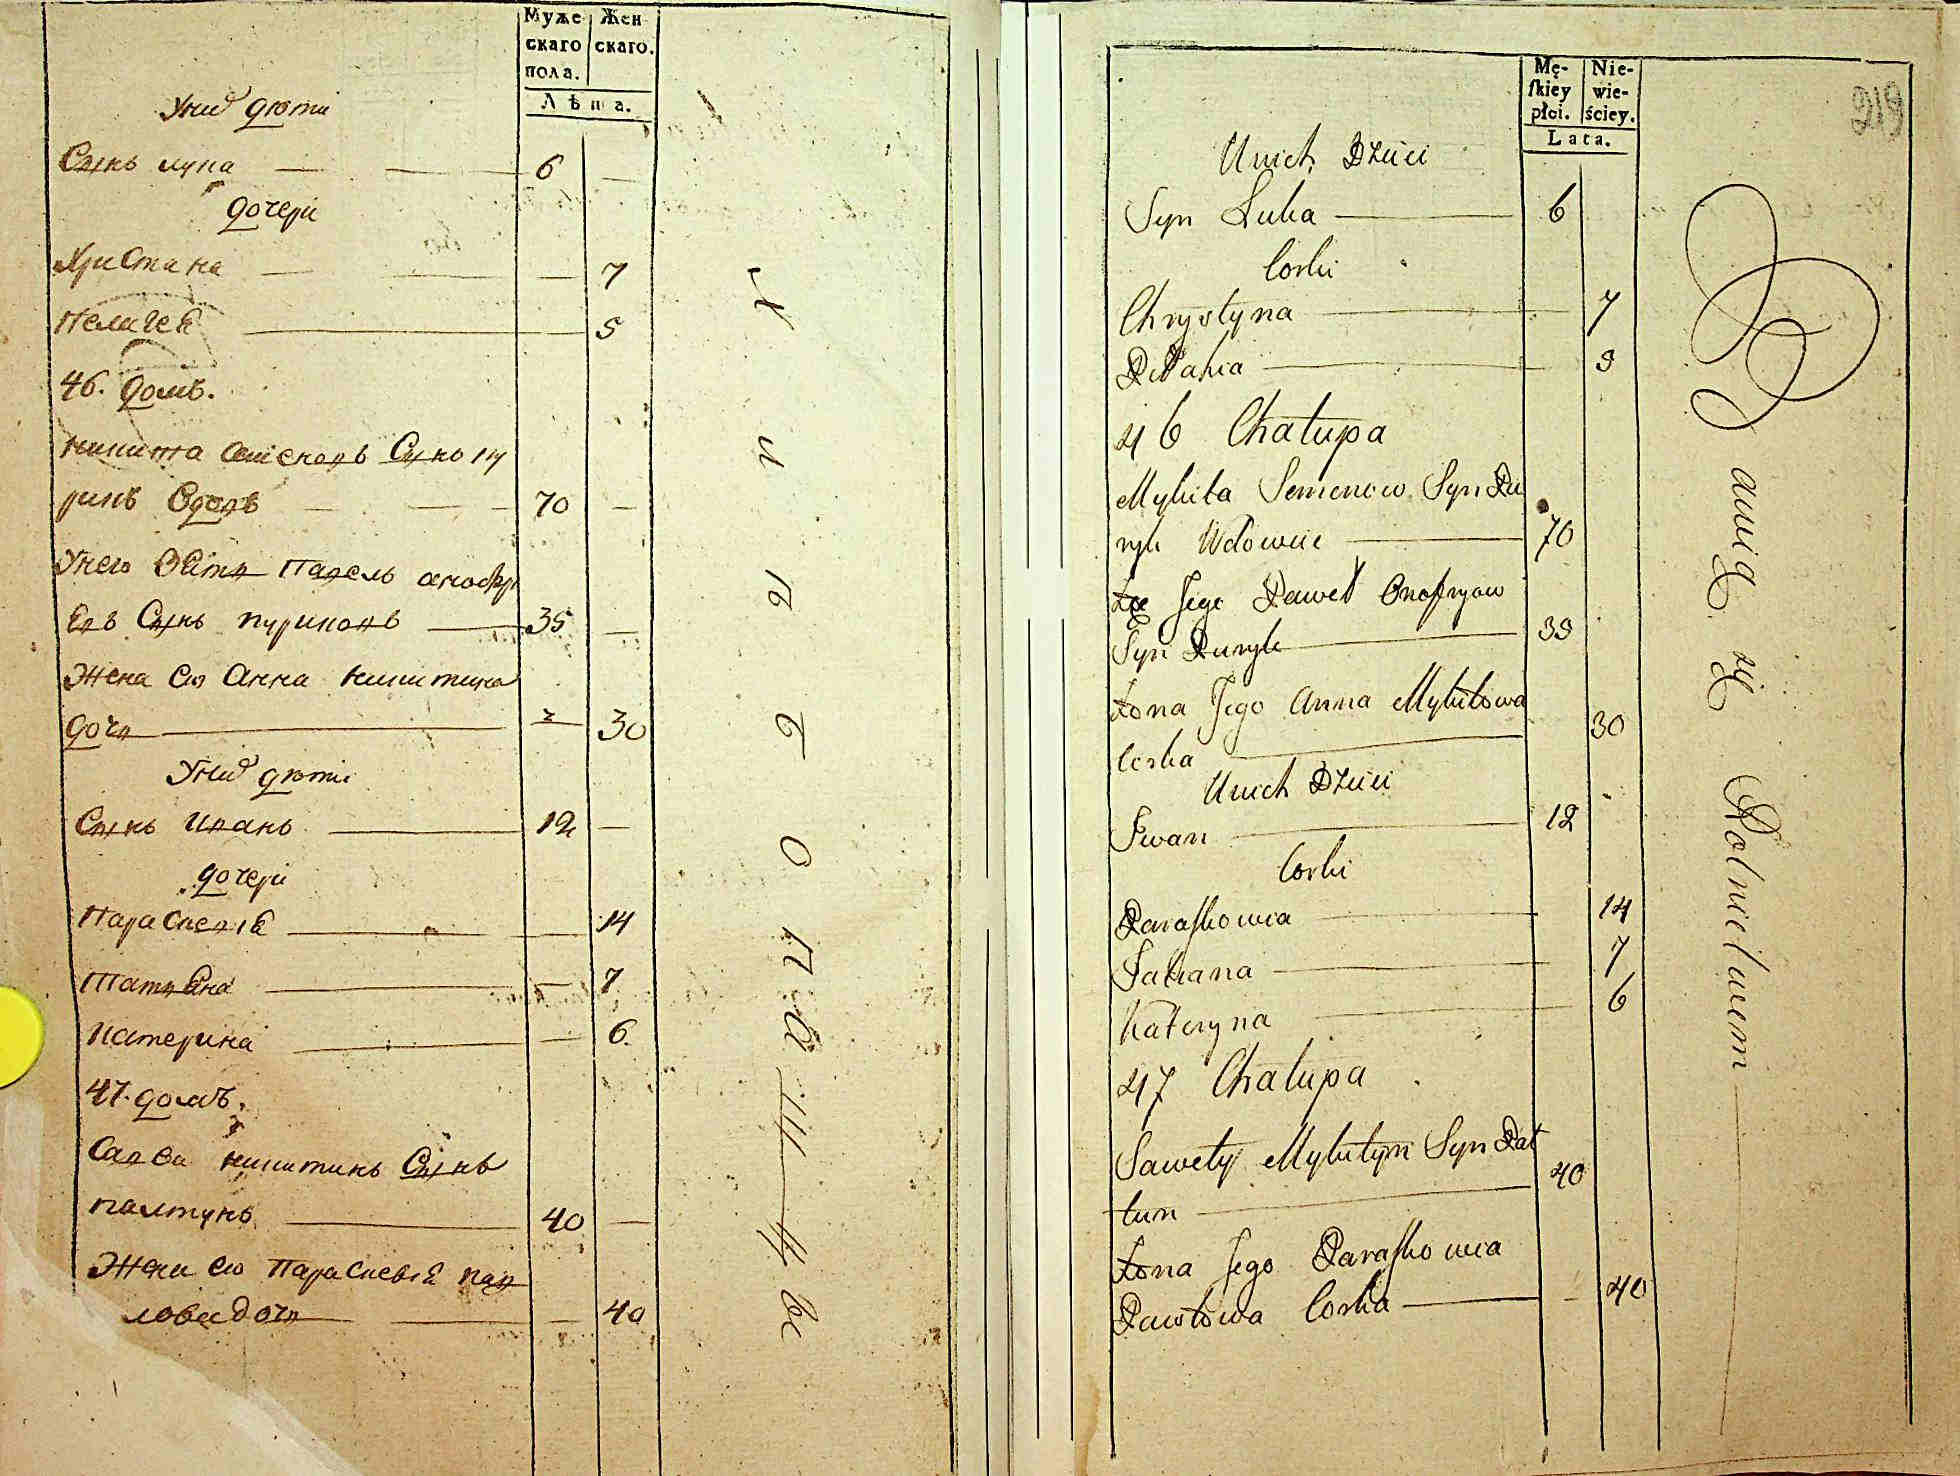 Муже
скаго
пола.
Жен
скаго.
Лѣта.
Унихъ дѣти
Сынъ лука 6
дочери
Христина 7
Пелагеѣ 5
46. домъ.
никита семеновъ Сынъ пу
рикъ вдовъ 70
Унего зять Павелъ онофрі
евъ Сынъ пуриковъ 35
Жена его Анна никитина
дочь 30
Унихъ дѣти
Сынъ иванъ 12
дочери
Параскевіѣ 14
татьяна 7
катерина 6
47. домъ.
Савва никитинъ Сынъ
палтунъ 40
Жена его Параскевіѣ пав
лова дочь 40
хлѣбопашцы
Mę-
ſkiey
płci.
Nie-
wie-
ściey.
Lata.
219
Unich Dzieci
Syn Luka 6
Corki
Chrystyna 7
Pelahia 5
46 Chałupa
Mykita Semenow Syn Pu
ryk Wdowiec 70
Zięć Jego Paweł Onofryow
Syn Puryk 35
Żona Jego Anna Mykitowa
Corka 30
Unich Dzieci
Iwan 12
Corki
Paraſkowia 14
Tatiana 7
Kateryna 6
47 Chałupa
Sawety Mykityn Syn Pał
tun 40
Żona Jego Paraſkowia
Pawłowa Corka 40
Bawią się Rolnictwem